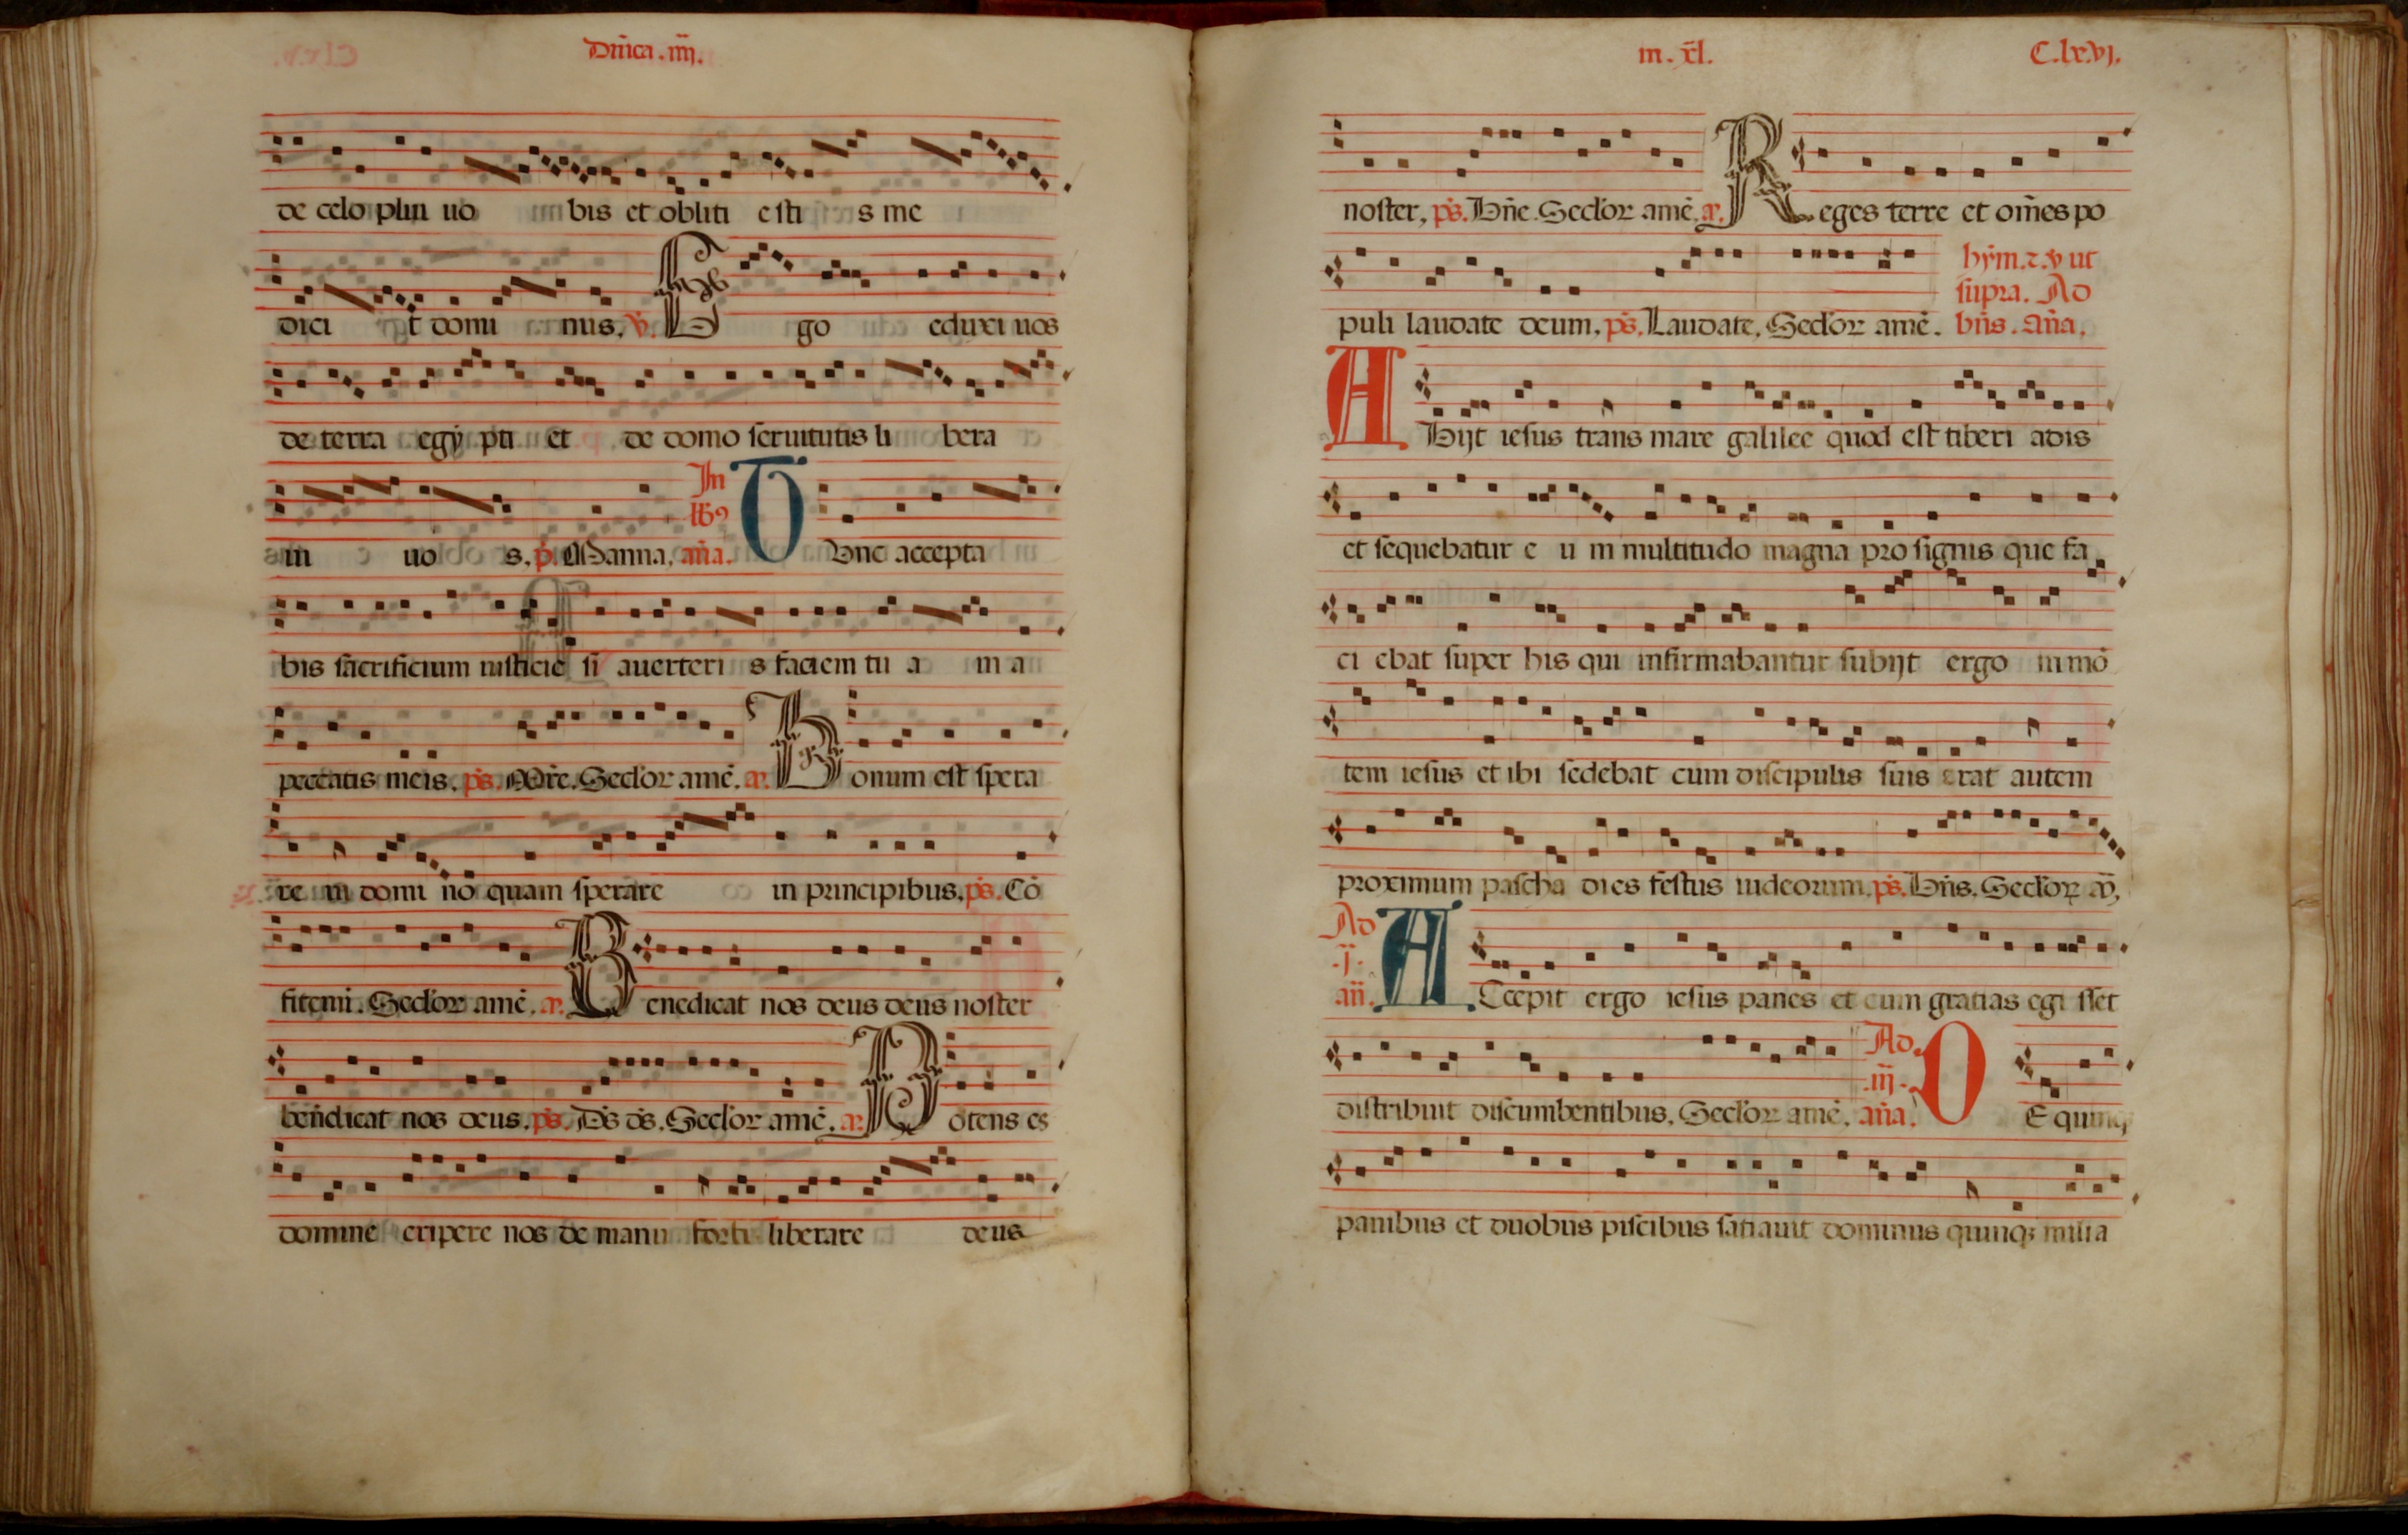 Dn̄ica . iiij.
de celo plui uo bis et obliti esti s me
dici t domi nus. v̄. Ego eduxi uos
de terra egẏ pti et de domo seruitutis li bera
ui uo s. p̄. Manna, an̄a. Tunc accepta
In
lb9
bis sacrificium iusticie si auerteri s faciem tu a m a
peccatis meis. ps̄. Mr̄e. Seclor amē. a. Bonum est spera
re in domi no quam sperare in principibus. ps̄. Cō
fitemi. Seclor amē. a. Benedicat nos deus deus noster
ben̄dicat nos deus. ps̄. Ds̄ ds̄. Seclor amē. a. Potens es
domine eripere nos de manu forti liberare deus
in . xl̄. C.lx.vj.
noster, ps̄. Bn̄e. Seclor amē. a. Reges terre et om̄es po
hẏm. ⁊. v̄ ut
supra. Ad
puli laudate deum. ps̄. Laudate. Seclor amē. bn̄s. an̄a.
Abijt iesus trans mare galilee quod est tiberi adis
et sequebatur e u m multitudo magna pro signis que fa
ci ebat super his qui infirmabantur subijt ergo in mō
tem iesus et ibi sedebat cum discipulis suis erat autem
proximum pascha dies festus iudeorum. ps̄. Bn̄s. Seclor a
Ad
.j.
an̄. Accepit ergo iesus panes et cum gratias egi sset
distribuit discumbentibus. Seclor amē. an̄a. De quinq;
Ad
.iij.
panibus et duobus piscibus satiauit dominus quinq; milia